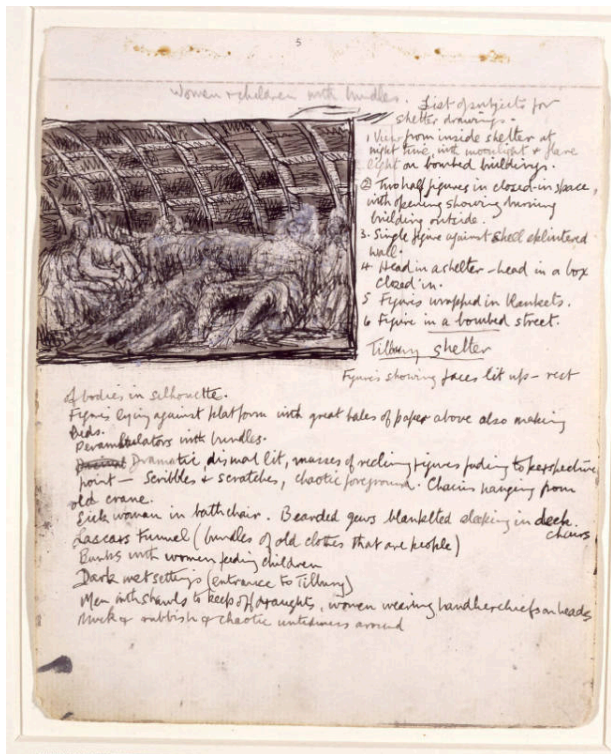 5
Women & children with bundles.
List of subjects for
shelter drawings -
1 View from inside shelter at
night time, with moonlight & flare
light on bombed buildings.
② Two half figures in closed-in space,
with opening showing burning
building outside.
3. Single figure against shell splintered
wall.
4 Head in a shelter - head in a box
closed in.
5 Figures wrapped in blankets.
6 Figure in a bombed street.
Tilbury shelter
Figures showing faces lit up - rest
of bodies in silhouette.
Figures lying against platform with great bales of paper above also making
beds.
Perambulators with bundles.
Dramatic, dismal lit, masses of reclining figures fading to perspective
point - Scribbles & scratches, chaotic foreground. Chains hanging from
old crane.
Sick woman in bathchair. Bearded Jews blanketted sleeping in deck
chairs
Lascars Tunnel (bundles of old clothes that are people)
Bunks with women feeding children
Dark wet settings (entrance to Tilbury)
Men with shawls to keep off draughts, women wearing handkerchiefs on heads
Muck & rubbish & chaotic untidiness around